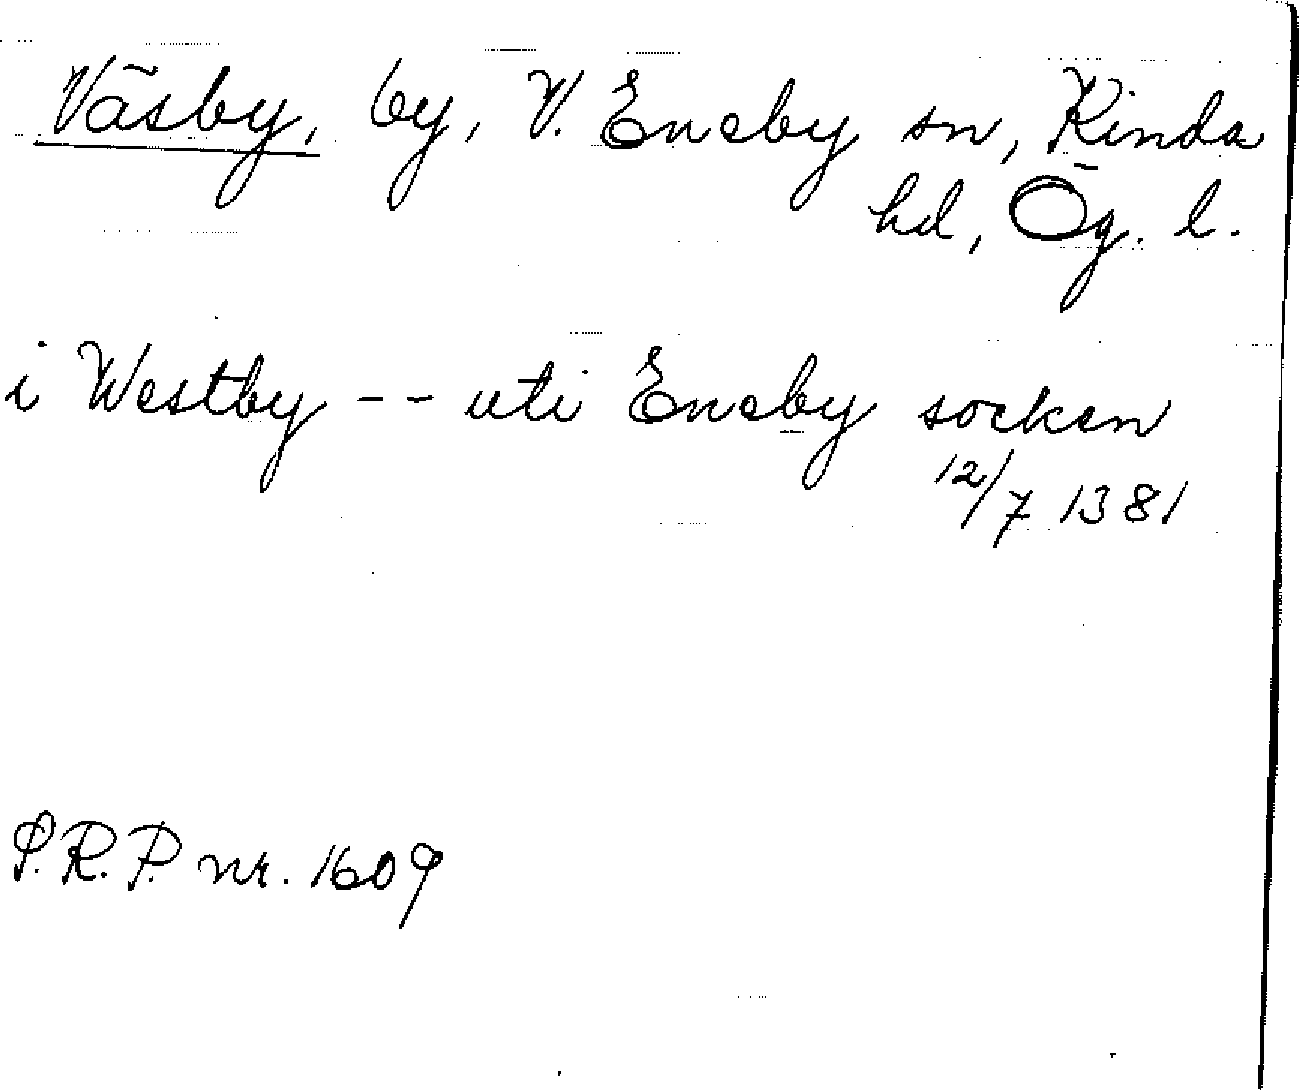 Väsby, by, V. Eneby sn, Kinda
hd, Ög. l.
i Westby -- uti Eneby socken
12/7 1381
P.R.P. nr. 1609